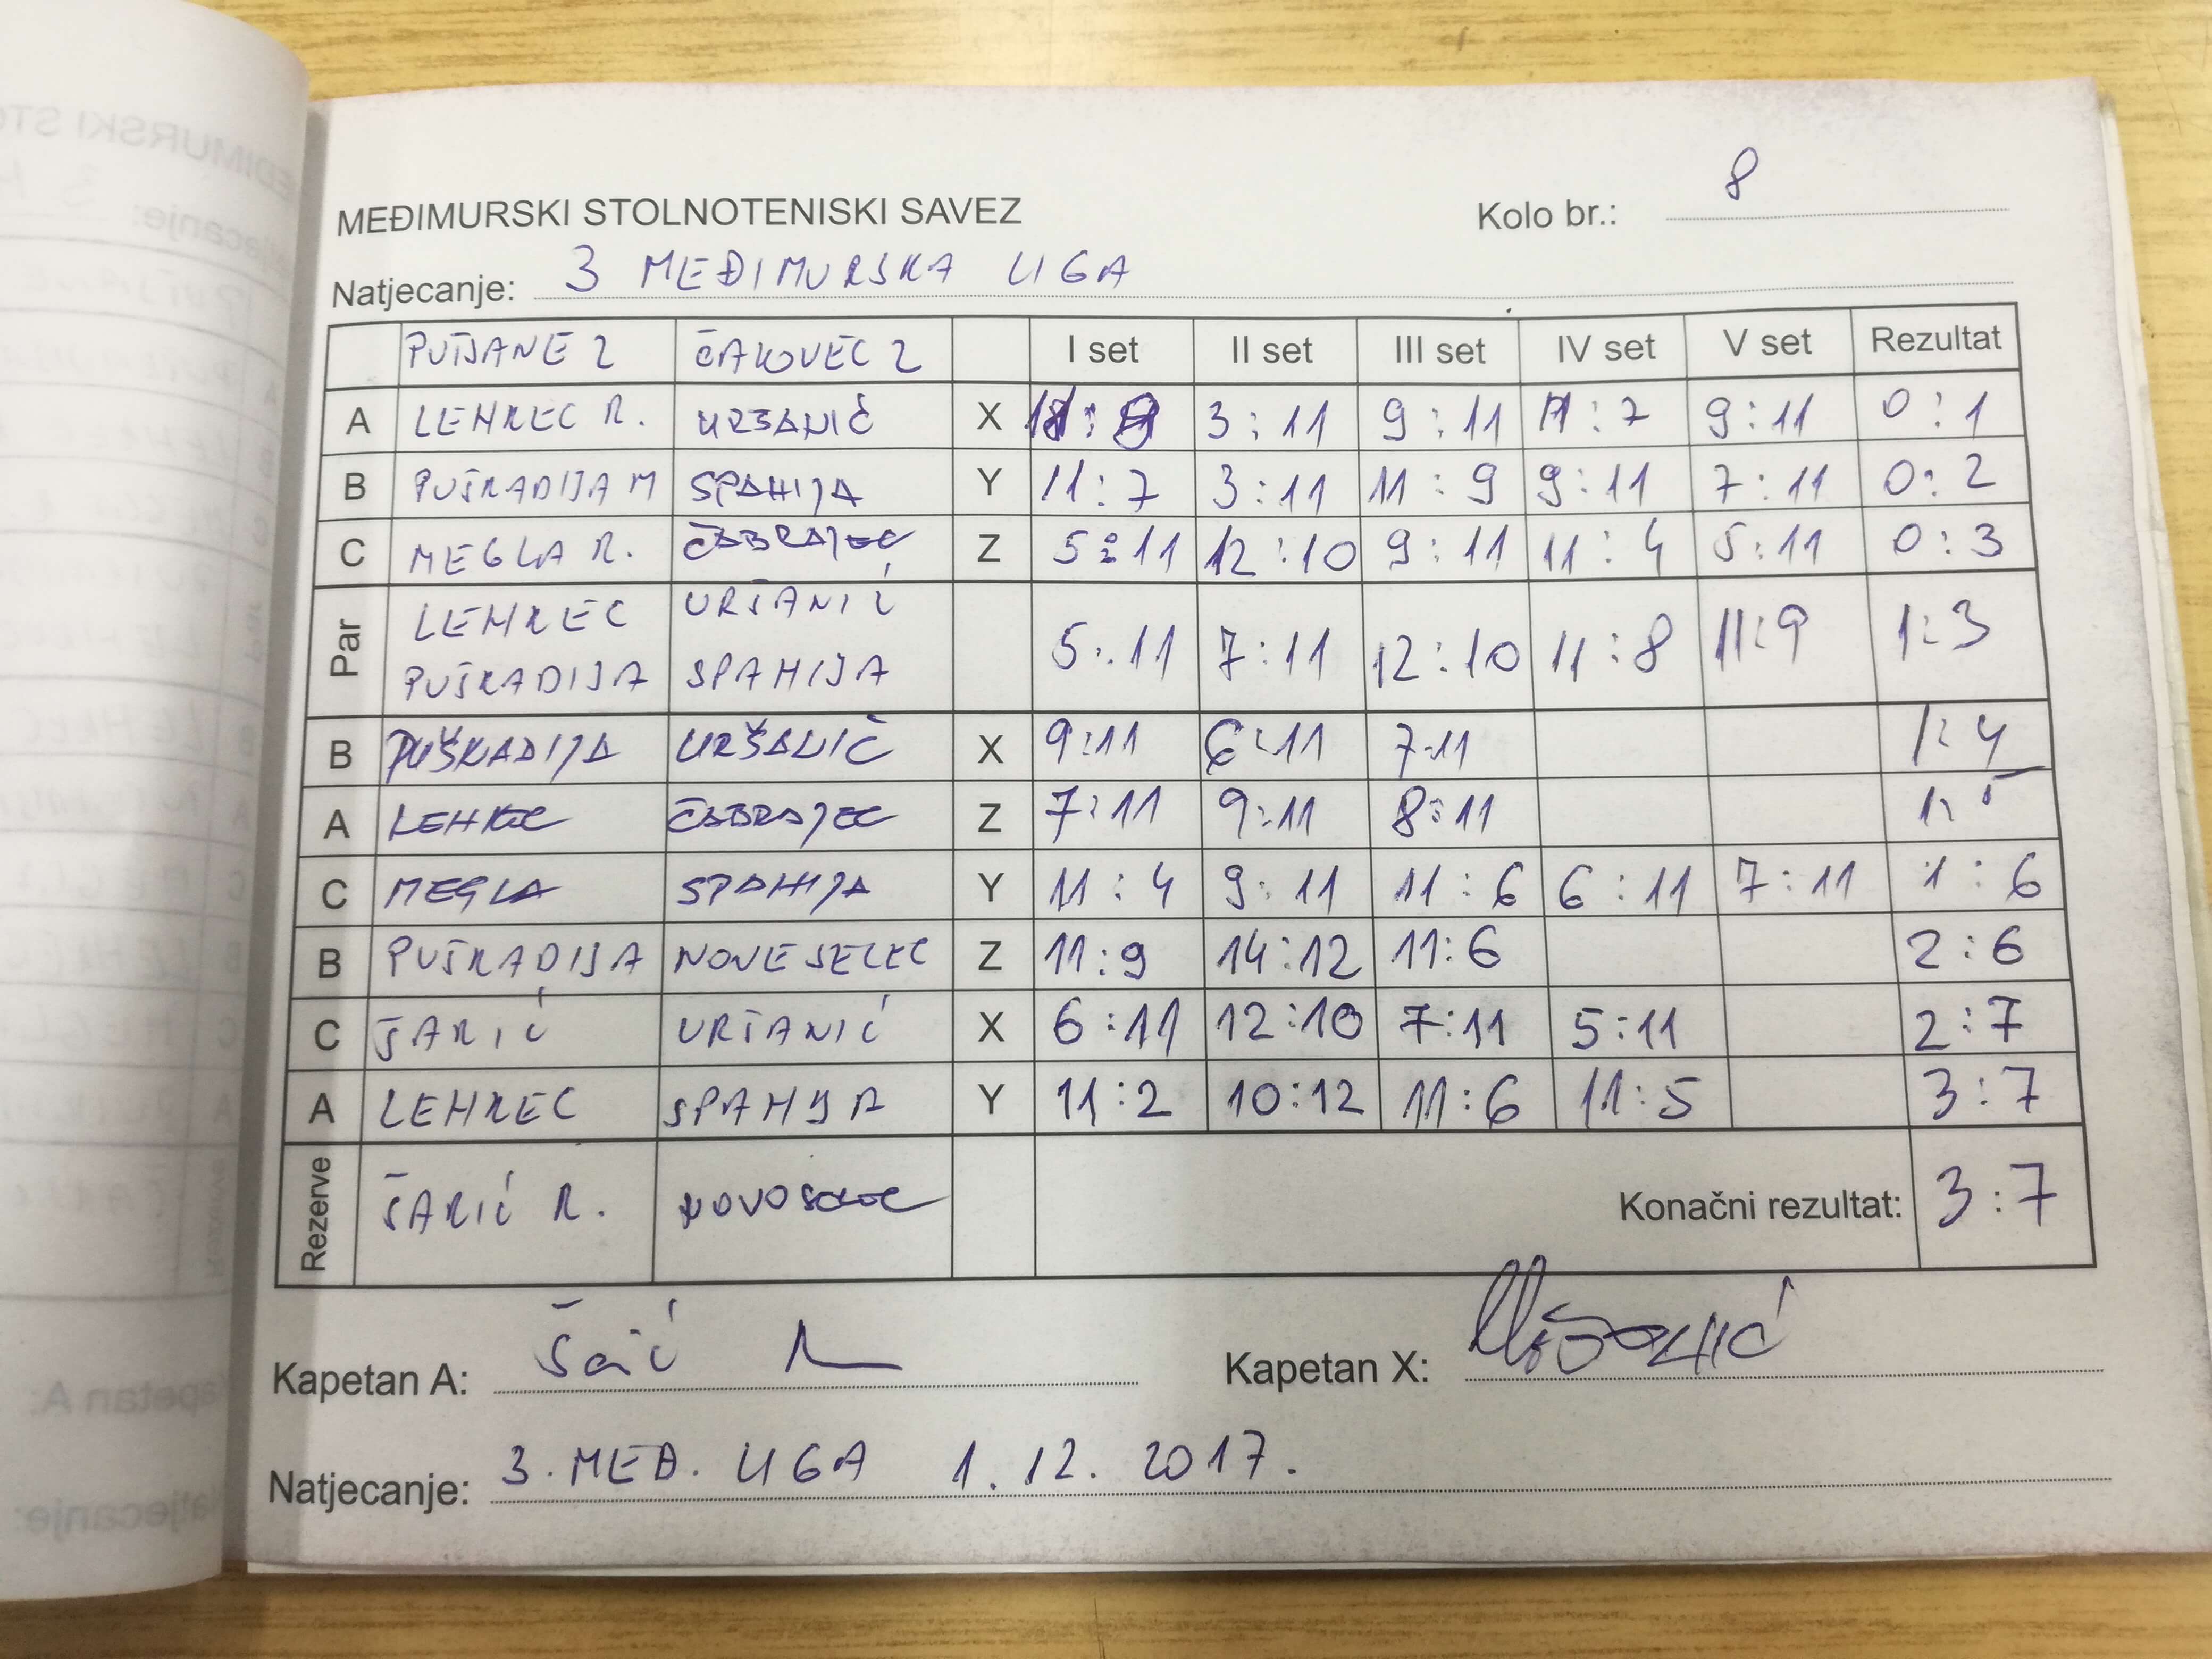 MEĐIMURSKI STOLNOTENISKI SAVEZ Kolo br.: 8
Natjecanje: 3 MEĐIMURSKA LIGA
PUŠĆANE 2 ČAKOVEC 2 I set II set III set IV set V set Rezultat
A LEHKEC R. URŠANIČ X 11:9 3:11 9:11 11:7 9:11 0:1
B PUŠKADIJA M SPAHIJA Y 11:7 3:11 11:9 9:11 7:11 0:2
C MEGLA R. ČABRAJEC Z 5:11 12:10 9:11 11:4 5:11 0:3
Par LEHKEC URŠANIĆ 5:11 7:11 12:10 11:8 11:9 1:3
PUŠKADIJA SPAHIJA
B PUŠKADIJA URŠANIČ X 9:11 6:11 7:11 1:4
A LEHKEC ČABRAJEC Z 7:11 9:11 8:11 1:5
C MEGLA SPAHIJA Y 11:4 9:11 11:6 6:11 7:11 1:6
B PUŠKADIJA NOVESELEC Z 11:9 14:12 11:6 2:6
C ŠARIĆ URŠANIĆ X 6:11 12:10 7:11 5:11 2:7
A LEHKEC SPAHIJA Y 11:2 10:12 11:6 11:5 3:7
Rezerve ŠARIĆ R. NOVOSELEC Konačni rezultat: 3:7
Kapetan A: Šarić Kapetan X: Uršanić
Natjecanje: 3. MEĐ. LIGA 1.12.2017.